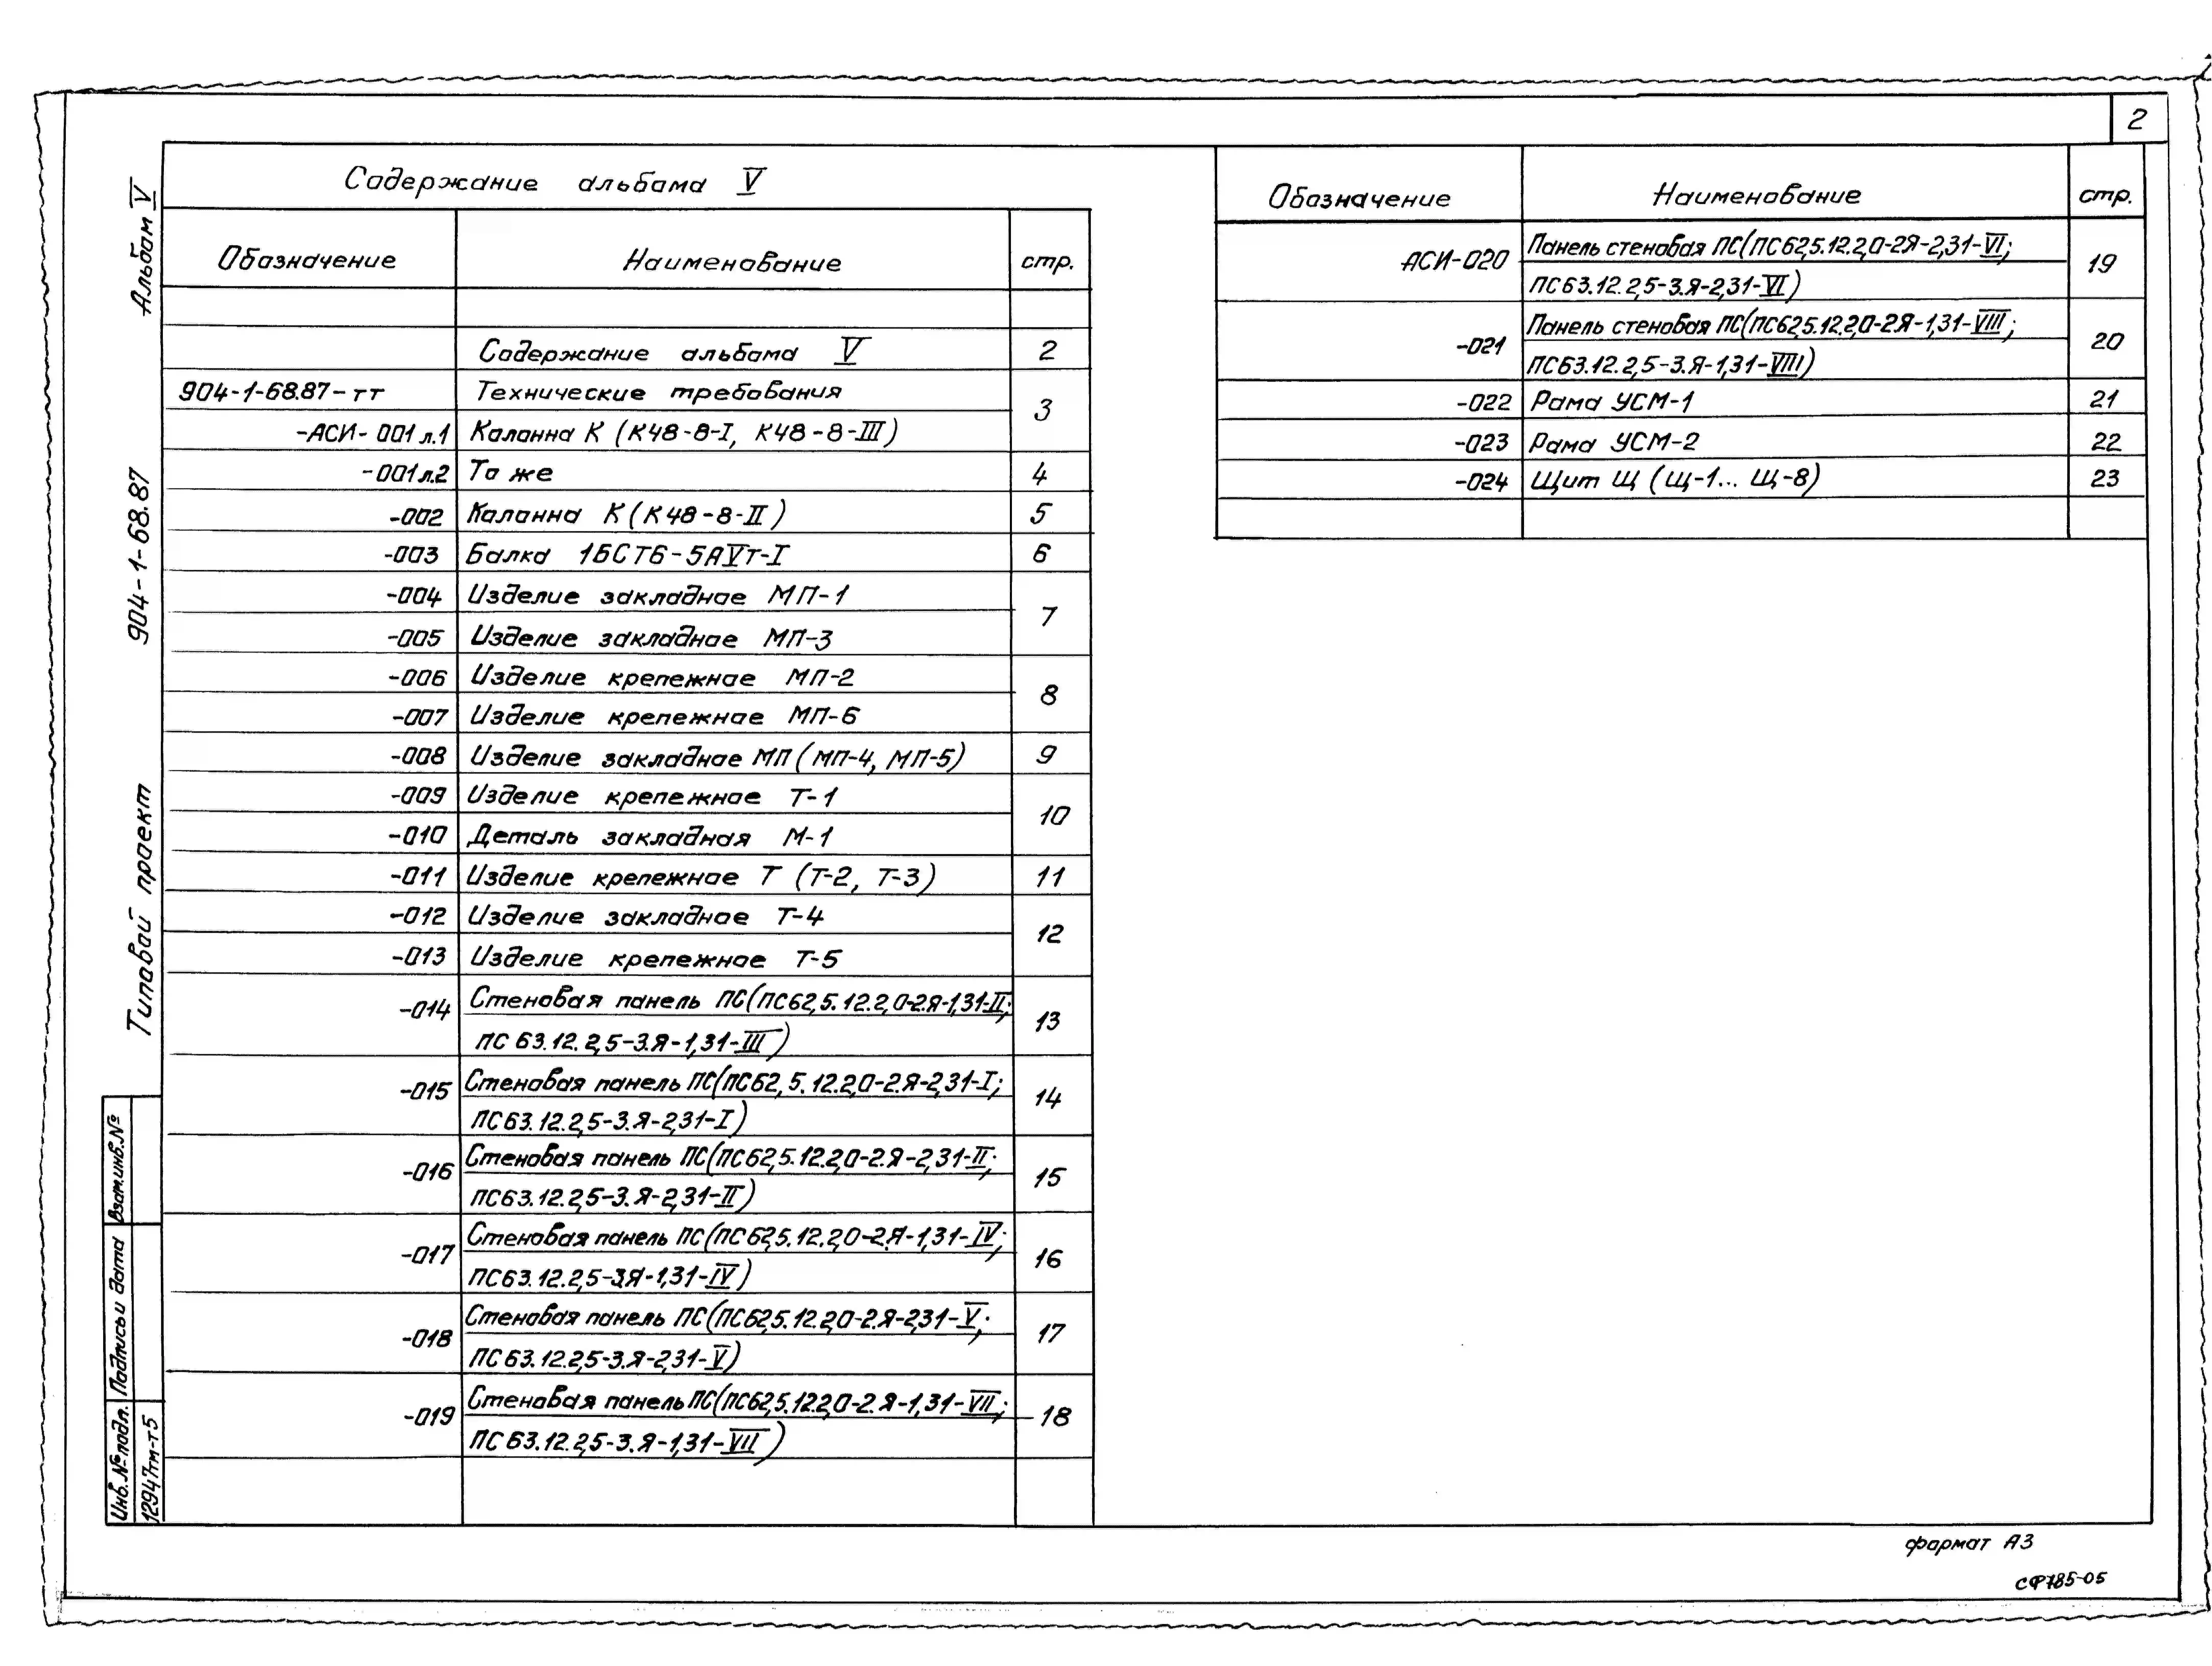 2
Содержание альбома V
Обозначение Наименование стр.
Содержание альбома V 2
904-1-68.87-ТТ Технические требования 3
-АСИ-001 л.1 Колонна К (К48-8-I, К48-8-III)
-001 л.2 То же 4
-002 Колонна К (К48-8-II) 5
-003 Балка 1БСТ6-5АVт-I 6
-004 Изделие закладное МП-1 7
-005 Изделие закладное МП-3
-006 Изделие крепежное МП-2 8
-007 Изделие крепежное МП-6
-008 Изделие закладное МП (МП-4, МП-5) 9
-009 Изделие крепежное Т-1 10
-010 Деталь закладная М-1
-011 Изделие крепежное Т (Т-2, Т-3) 11
-012 Изделие закладное Т-4 12
-013 Изделие крепежное Т-5
-014 Стеновая панель ПС(ПС62,5.12.2,0-2.Я-1,31-II; 13
ПС 63.12.2,5-3.Я-1,31-III)
-015 Стеновая панель ПС(ПС62,5.12.2,0-2.Я-2,31-I; 14
ПС63.12.2,5-3.Я-2,31-I)
-016 Стеновая панель ПС(ПС62,5.12.2,0-2.Я-2,31-II; 15
ПС63.12.2,5-3.Я-2,31-II)
-017 Стеновая панель ПС(ПС62,5.12.2,0-2.Я-1,31-IV; 16
ПС63.12.2,5-3.Я-1,31-IV)
-018 Стеновая панель ПС(ПС62,5.12.2,0-2.Я-2,31-V; 17
ПС63.12.2,5-3.Я-2,31-V)
-019 Стеновая панель ПС(ПС62,5.12.2,0-2.Я-1,31-VII; 18
ПС63.12.2,5-3.Я-1,31-VII)
Обозначение Наименование стр.
АСИ-020 Панель стеновая ПС(ПС62,5.12.2,0-2Я-2,31-VI; 19
ПС63.12.2,5-3.Я-2,31-VI)
-021 Панель стеновая ПС(ПС62,5.12.2,0-2Я-1,31-VIII; 20
ПС63.12.2,5-3.Я-1,31-VIII)
-022 Рама УСМ-1 21
-023 Рама УСМ-2 22
-024 Щит Щ (Щ-1... Щ-8) 23
Типовой проект 904-1-68.87 Альбом V
Инв.№подл. Подпись и дата Взам.инв.№
12947тм-т5
формат А3
СФ785-05